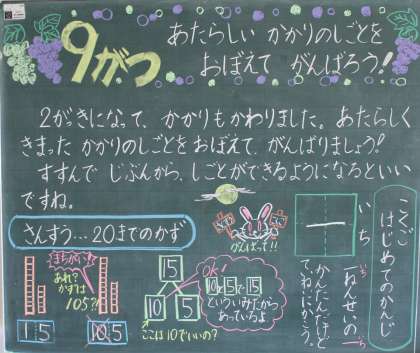 9がつ
あたらしい かかりのしごとを
おぼえて がんばろう！
2がっきになって、かかりもかわりました。あたらしく
きまった かかりのしごとを おぼえて、がんばりましょう！
すすんで じぶんから、しごとができるようになるといい
ですね。
さんすう…20までのかず
まちがい!!
あれ？
かずは
105?!
15
105
15
10
5
OK!
10と5で15
といういみだから
あっているよ
ここは10でいいの？
がんばって!!
こくご
はじめてのかんじ
一
いち
一ねんせいの一
いち
かんたんだけど
ていねいにかこう。